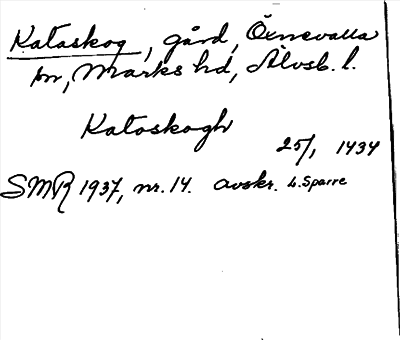 Kataskog, gård, Öxnevalla
sn, Marks hd, Älvsb. l.
Kataskogh
25/1 1434
SMR 1937, nr. 14. avskr. L. Sparre